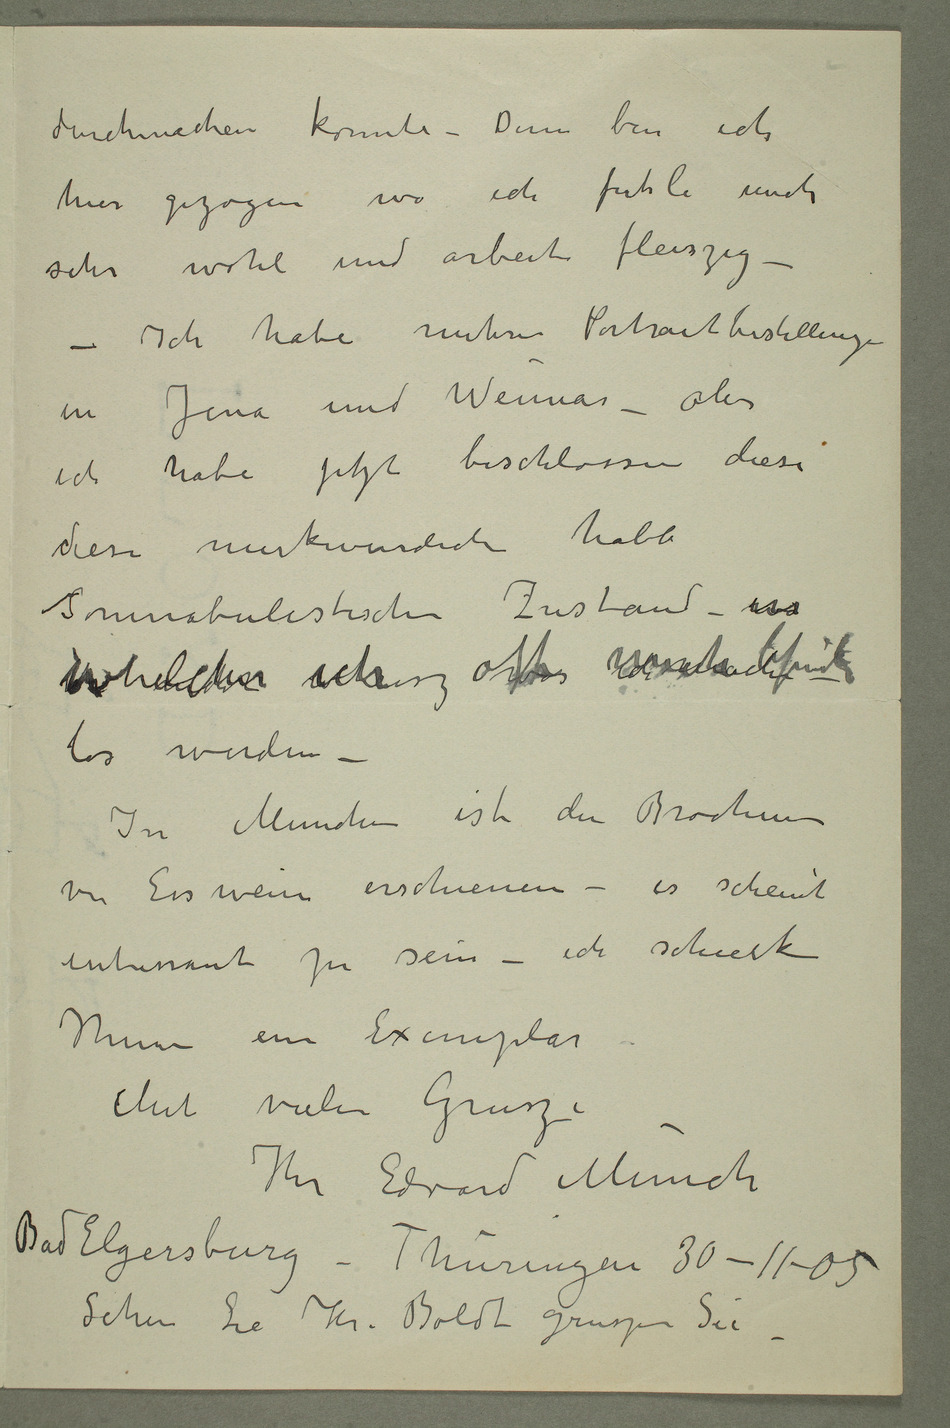 durchmachen konnte – Denn bin ich
hier gezogen wo ich fühle mich
sehr wohl und arbeite fleiszig –
– Ich habe mehre Portraitbestellungen
in Jena und Weimar – aber
ich habe jetzt beschlossen diese
diese merkwurdiche halb
Somnabulistische Zustand –
los werden –
In München ist die Brochure
von Esswein erschienen – es scheint
interressant zu sein – ich schicke
Ihnen ein Exemplar
Mit vielen Grusze
Ihr Edvard Munch
Bad Elgersburg – Thüringen 30–11–05
Sehen Sie Hr. Boldt gruszen Sie –